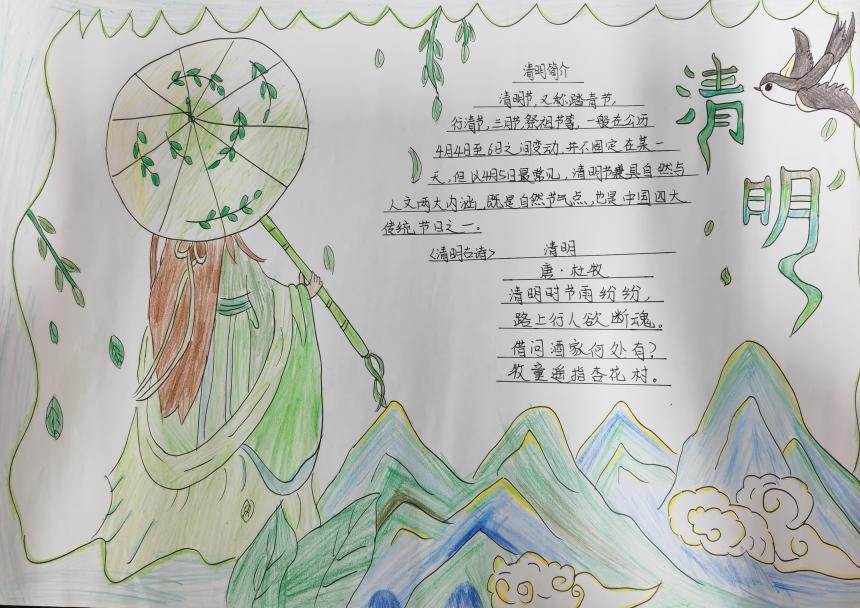 清明
清明简介
清明节,又称踏青节,
行清节,三月节,祭祖节等,一般在公历
4月4日至6日之间变动,并不固定在某一
天,但以4月5日最常见,清明节兼具自然与
人文两大内涵,既是自然节气点,也是中国四大
传统节日之一。
《清明古诗》 清明
唐·杜牧
清明时节雨纷纷,
路上行人欲断魂。
借问酒家何处有?
牧童遥指杏花村。